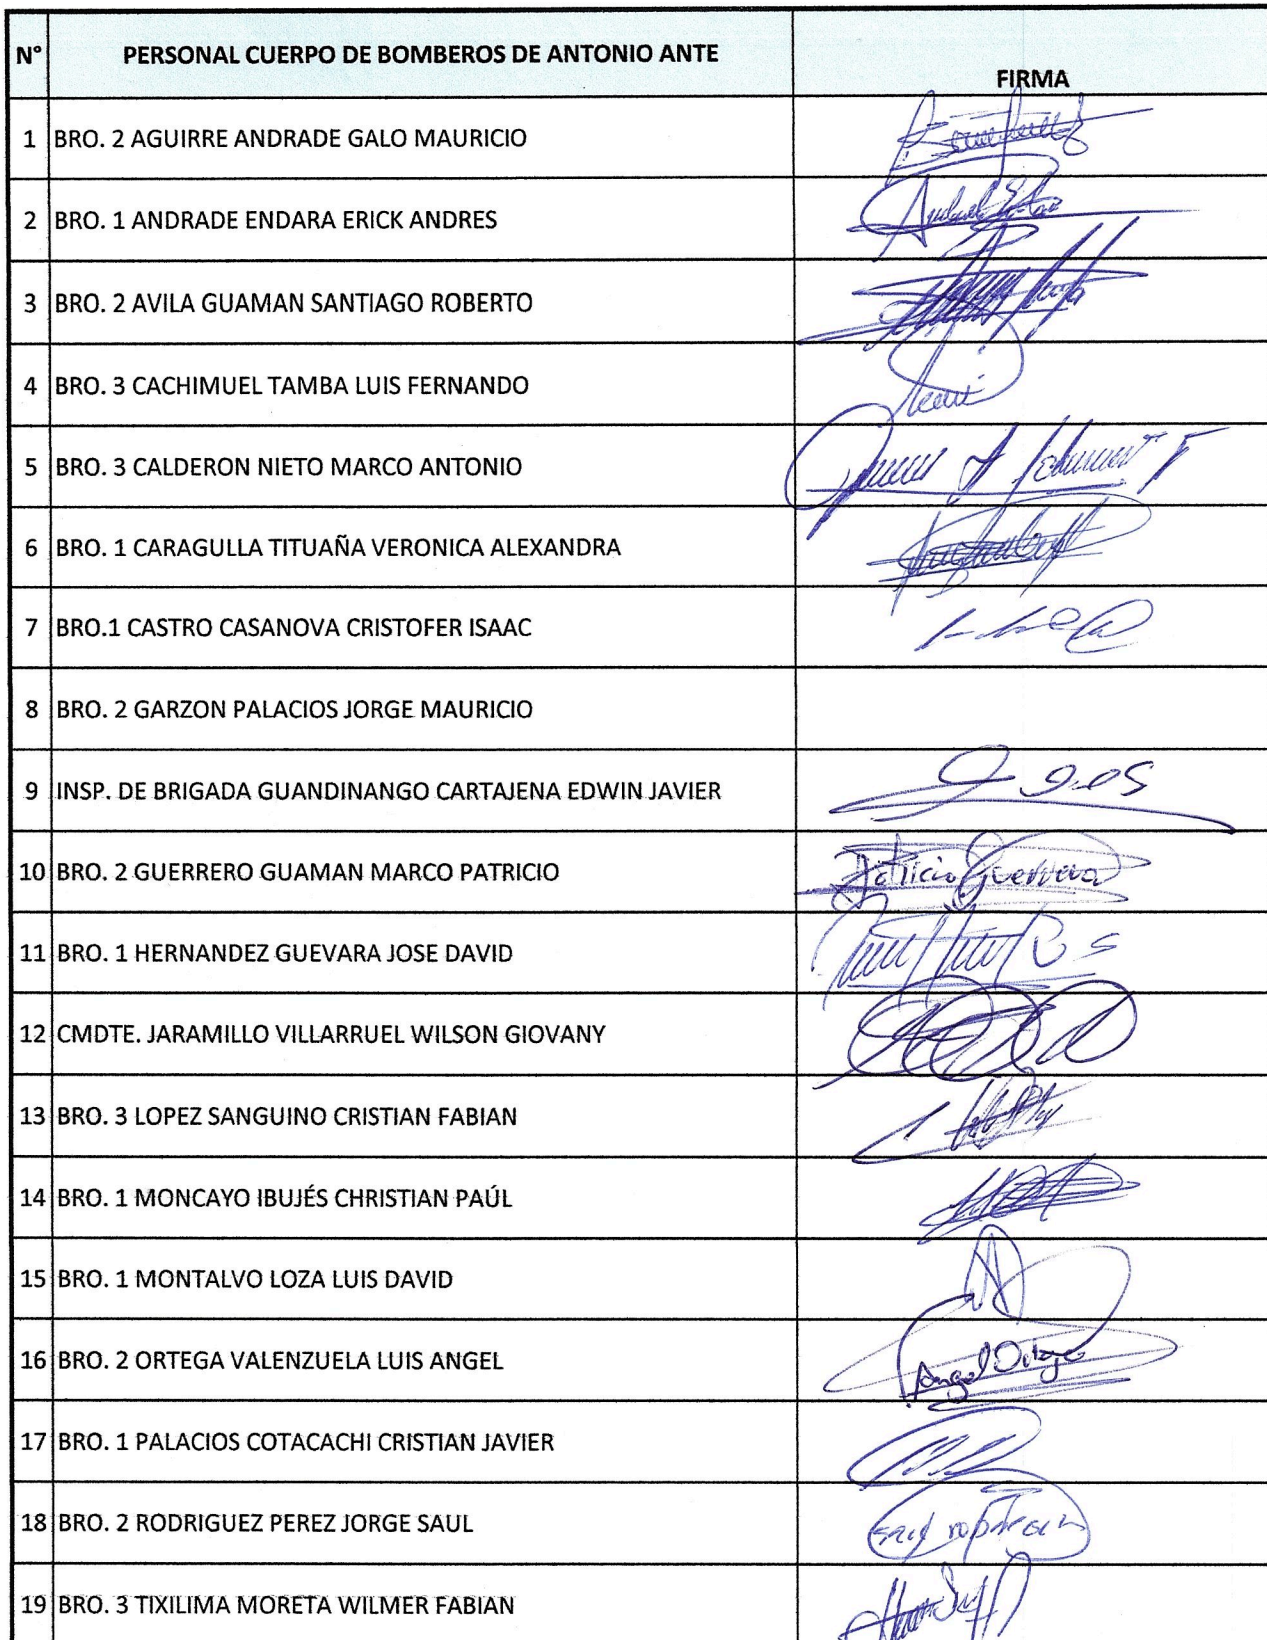 N° PERSONAL CUERPO DE BOMBEROS DE ANTONIO ANTE FIRMA
1 BRO. 2 AGUIRRE ANDRADE GALO MAURICIO
2 BRO. 1 ANDRADE ENDARA ERICK ANDRES
3 BRO. 2 AVILA GUAMAN SANTIAGO ROBERTO
4 BRO. 3 CACHIMUEL TAMBA LUIS FERNANDO
5 BRO. 3 CALDERON NIETO MARCO ANTONIO
6 BRO. 1 CARAGULLA TITUAÑA VERONICA ALEXANDRA
7 BRO.1 CASTRO CASANOVA CRISTOFER ISAAC
8 BRO. 2 GARZON PALACIOS JORGE MAURICIO
9 INSP. DE BRIGADA GUANDINANGO CARTAJENA EDWIN JAVIER
10 BRO. 2 GUERRERO GUAMAN MARCO PATRICIO Patricio Guerrero
11 BRO. 1 HERNANDEZ GUEVARA JOSE DAVID
12 CMDTE. JARAMILLO VILLARRUEL WILSON GIOVANY
13 BRO. 3 LOPEZ SANGUINO CRISTIAN FABIAN
14 BRO. 1 MONCAYO IBUJÉS CHRISTIAN PAÚL
15 BRO. 1 MONTALVO LOZA LUIS DAVID
16 BRO. 2 ORTEGA VALENZUELA LUIS ANGEL Angel Ortega
17 BRO. 1 PALACIOS COTACACHI CRISTIAN JAVIER
18 BRO. 2 RODRIGUEZ PEREZ JORGE SAUL
19 BRO. 3 TIXILIMA MORETA WILMER FABIAN